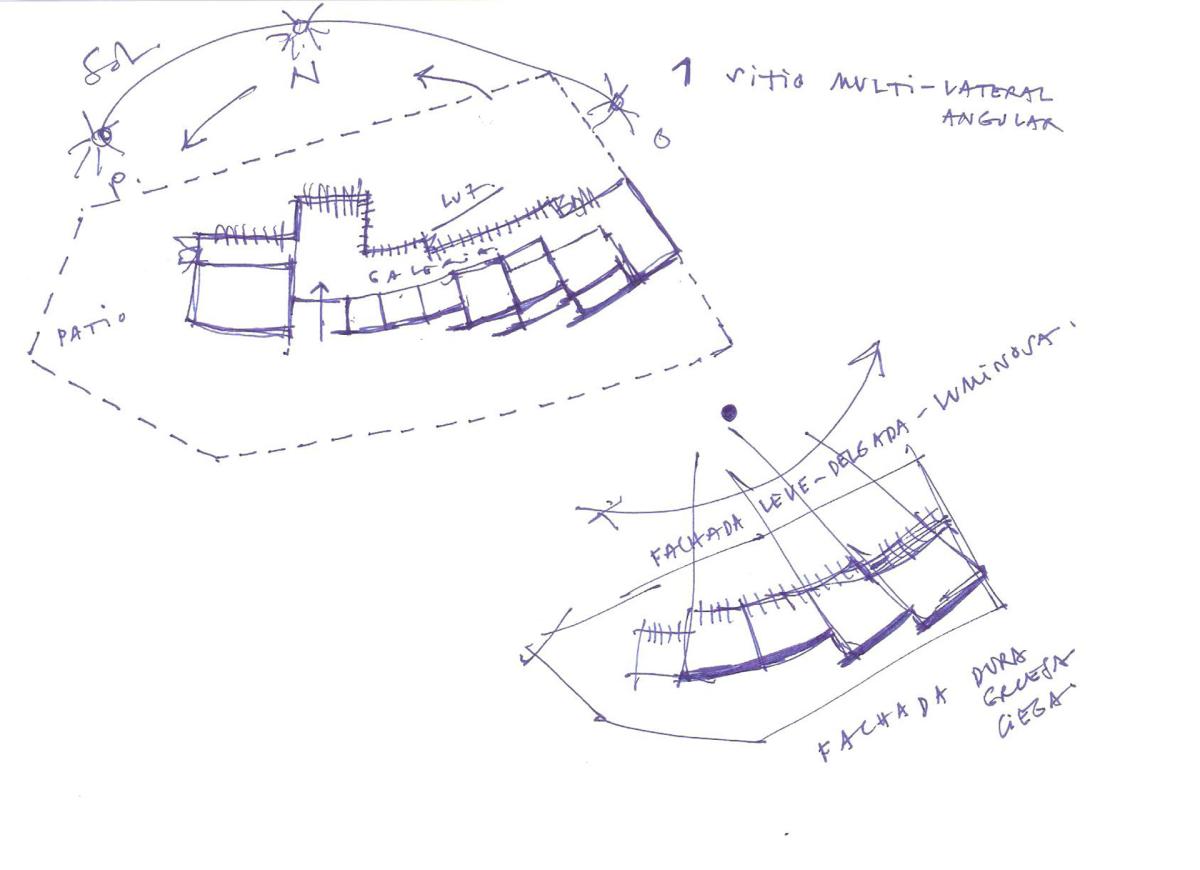 SOL
N
O
P
1 SITIO MULTI-LATERAL
ANGULAR
LUZ
GALERIA
PATIO
FACHADA LEVE-DELGADA-LUMINOSA.
FACHADA DURA
GRUESA
CIEGA.